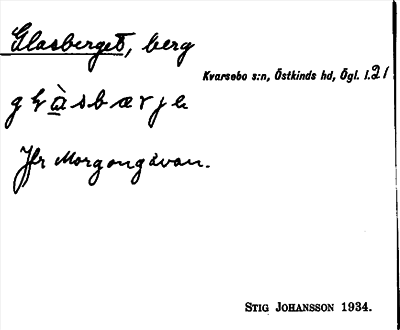 Glasberget, berg
Kvarsebo s:n, Östkinds hd, Ögl. l. 21
Jfr Morgongåvan.
STIG JOHANSSON 1934.